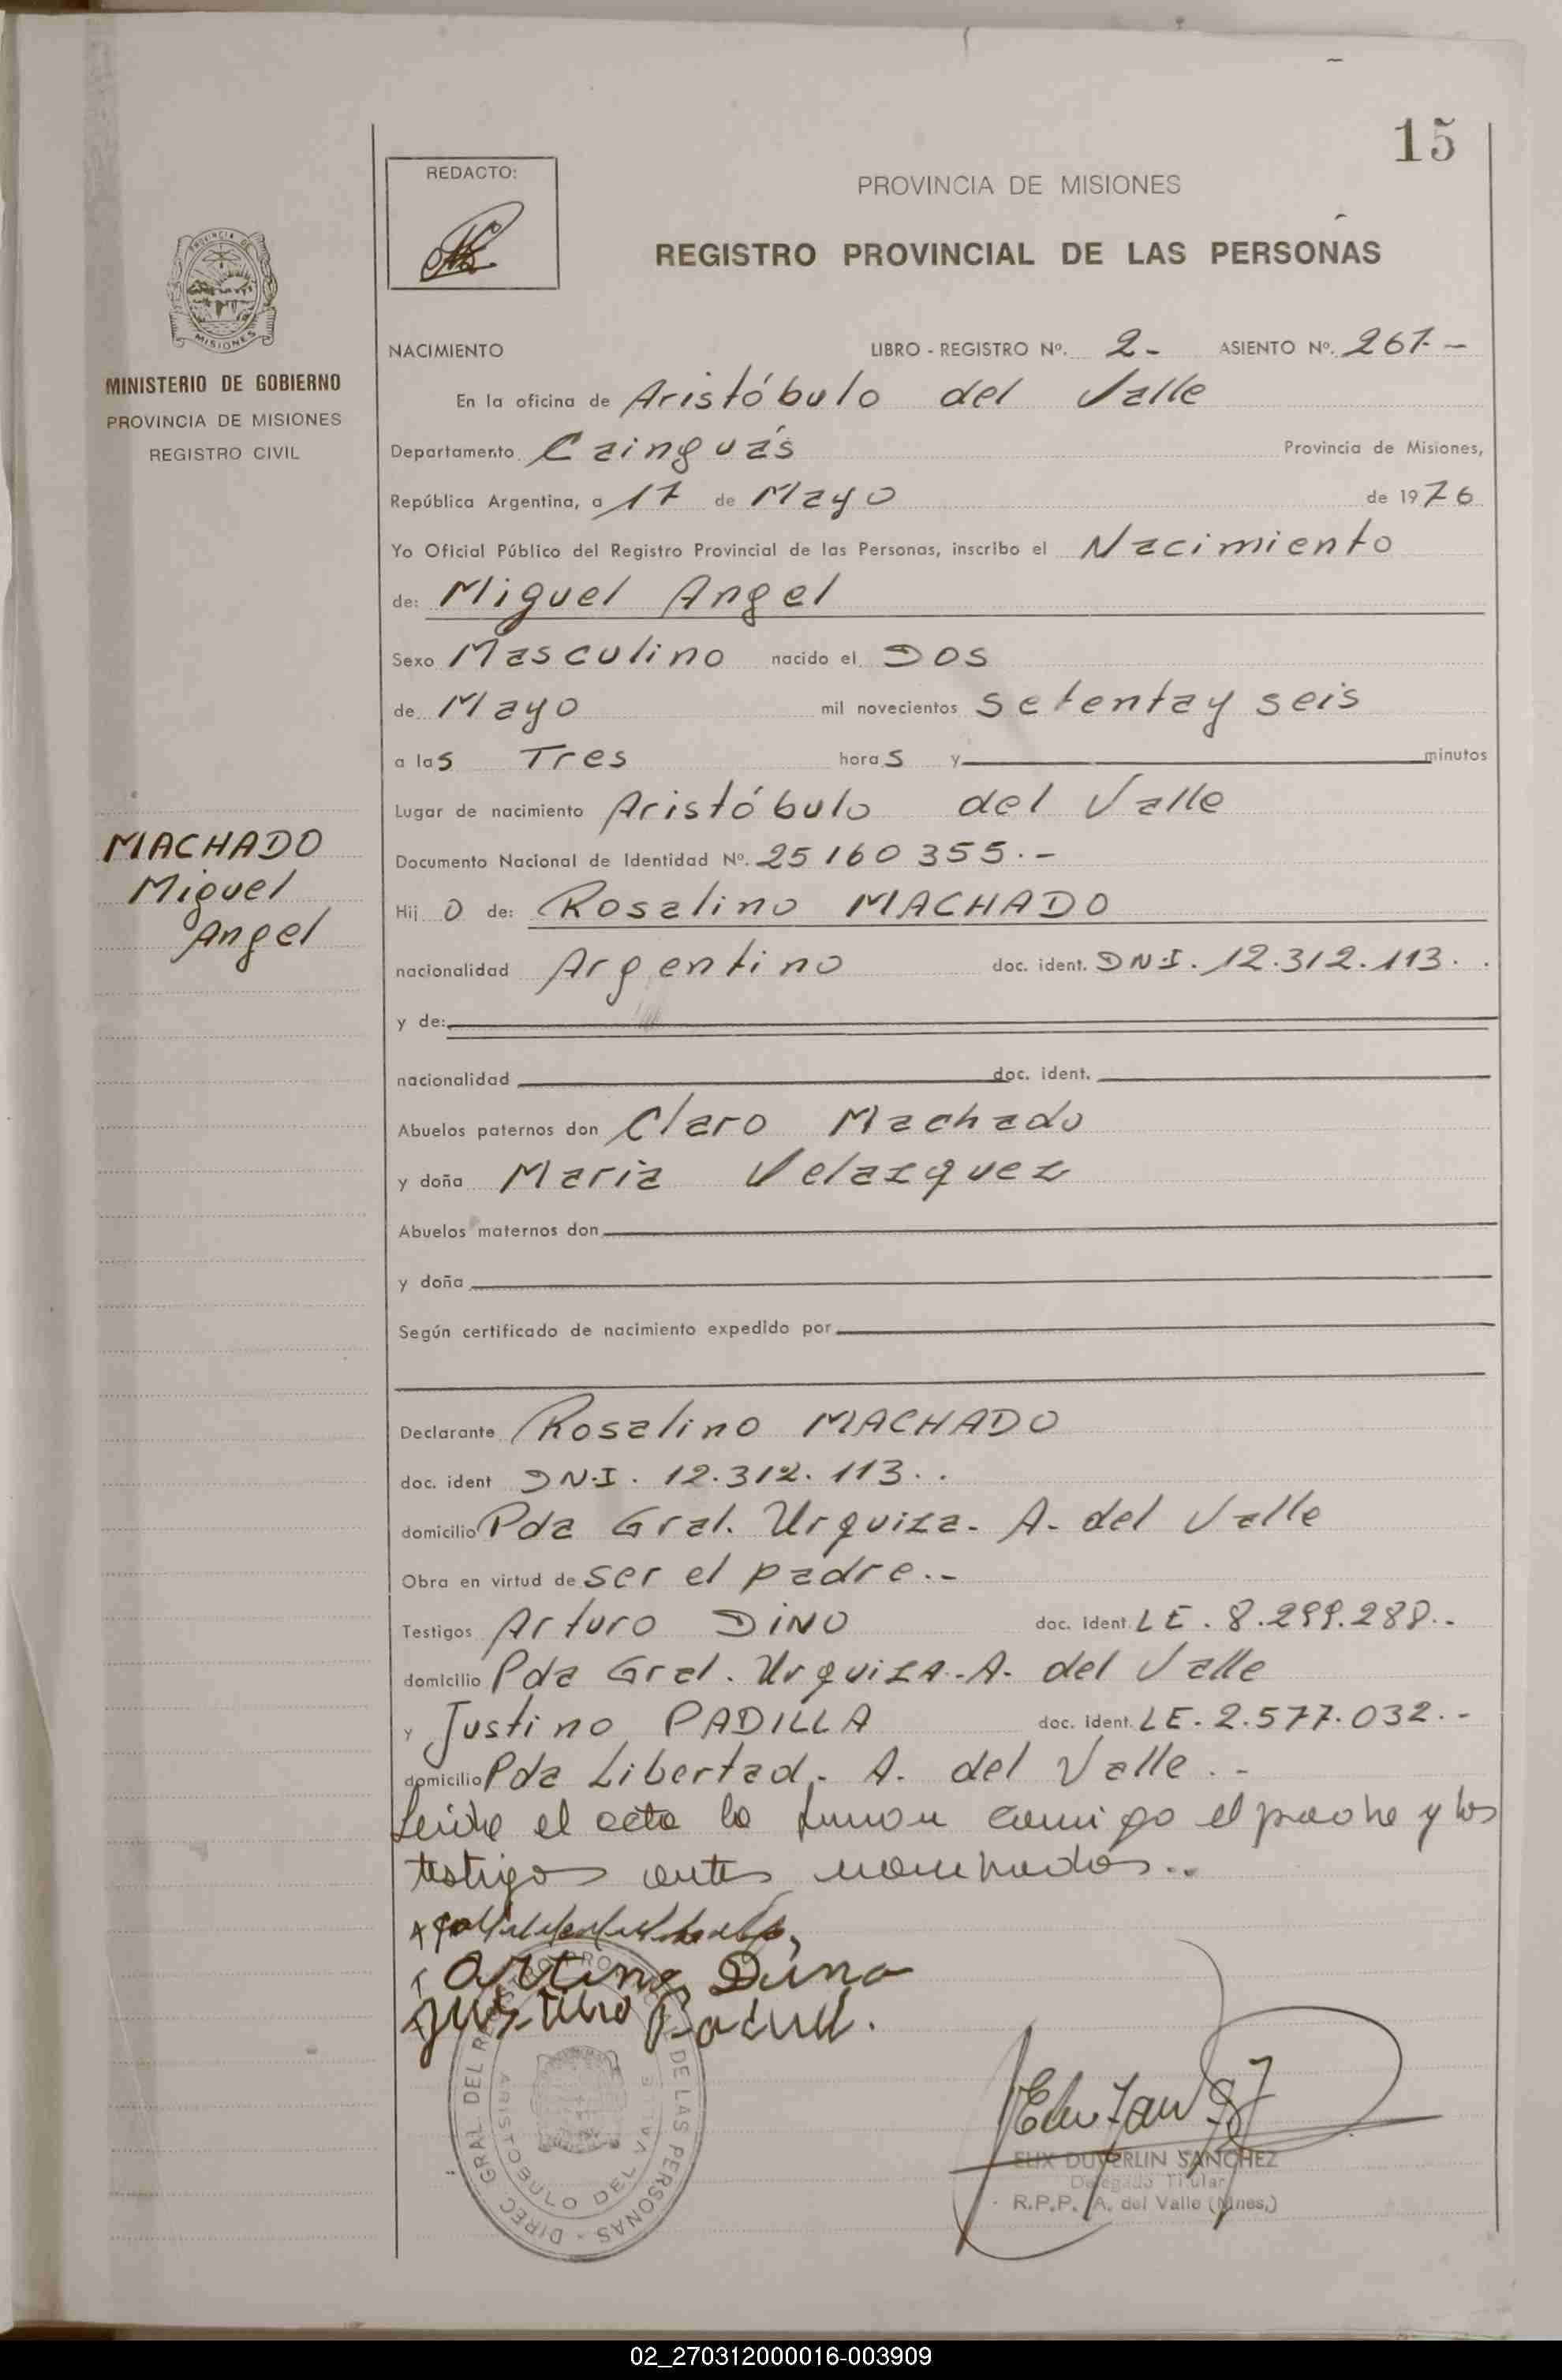 15
REDACTO:
PROVINCIA DE MISIONES
REGISTRO PROVINCIAL DE LAS PERSONAS
PROVINCIA DE
MISIONES
MINISTERIO DE GOBIERNO
PROVINCIA DE MISIONES
REGISTRO CIVIL
NACIMIENTO LIBRO - REGISTRO Nº. 2- ASIENTO Nº. 267.-
En la oficina de Aristóbulo del Valle
Departamento Cainguás Provincia de Misiones,
República Argentina, a 17 de Mayo de 1976
Yo Oficial Público del Registro Provincial de las Personas, inscribo el Nacimiento
de: Miguel Angel
Sexo Masculino nacido el DOS
de Mayo mil novecientos setenta y seis
a las Tres horas y minutos
Lugar de nacimiento Aristóbulo del Valle
MACHADO
Miguel
Angel
Documento Nacional de Identidad Nº. 25160355.-
Hij O de: Rosalino MACHADO
nacionalidad Argentino doc. ident. DN.I. 12.312.113..
y de:
nacionalidad doc. ident.
Abuelos paternos don Claro Machado
y doña Maria Velazquez
Abuelos maternos don
y doña
Según certificado de nacimiento expedido por
Declarante Rosalino MACHADO
doc. ident DN.I. 12.312.113..
domicilio Pda Gral. Urquiza- A- del Valle
Obra en virtud de ser el padre.-
Testigos Arturo DINO doc. ident. LE. 8.299.288.-
domicilio Pda Gral. Urquiza-A- del Valle
y Justino PADILLA doc. ident. LE. 2.577.032.-
domicilio Pda Libertad,- A. del Valle.-
Leída el acta la firman conmigo el padre y los
testigos antes nombrados..
DIREC. GRAL. DEL REGISTRO PROV. DE LAS PERSONAS -
ARISTOBULO DEL VALLE
ELIX DUVERLIN SANCHEZ
Delegado Titular
R.P.P. A. del Valle (Mnes.)
02_270312000016-003909